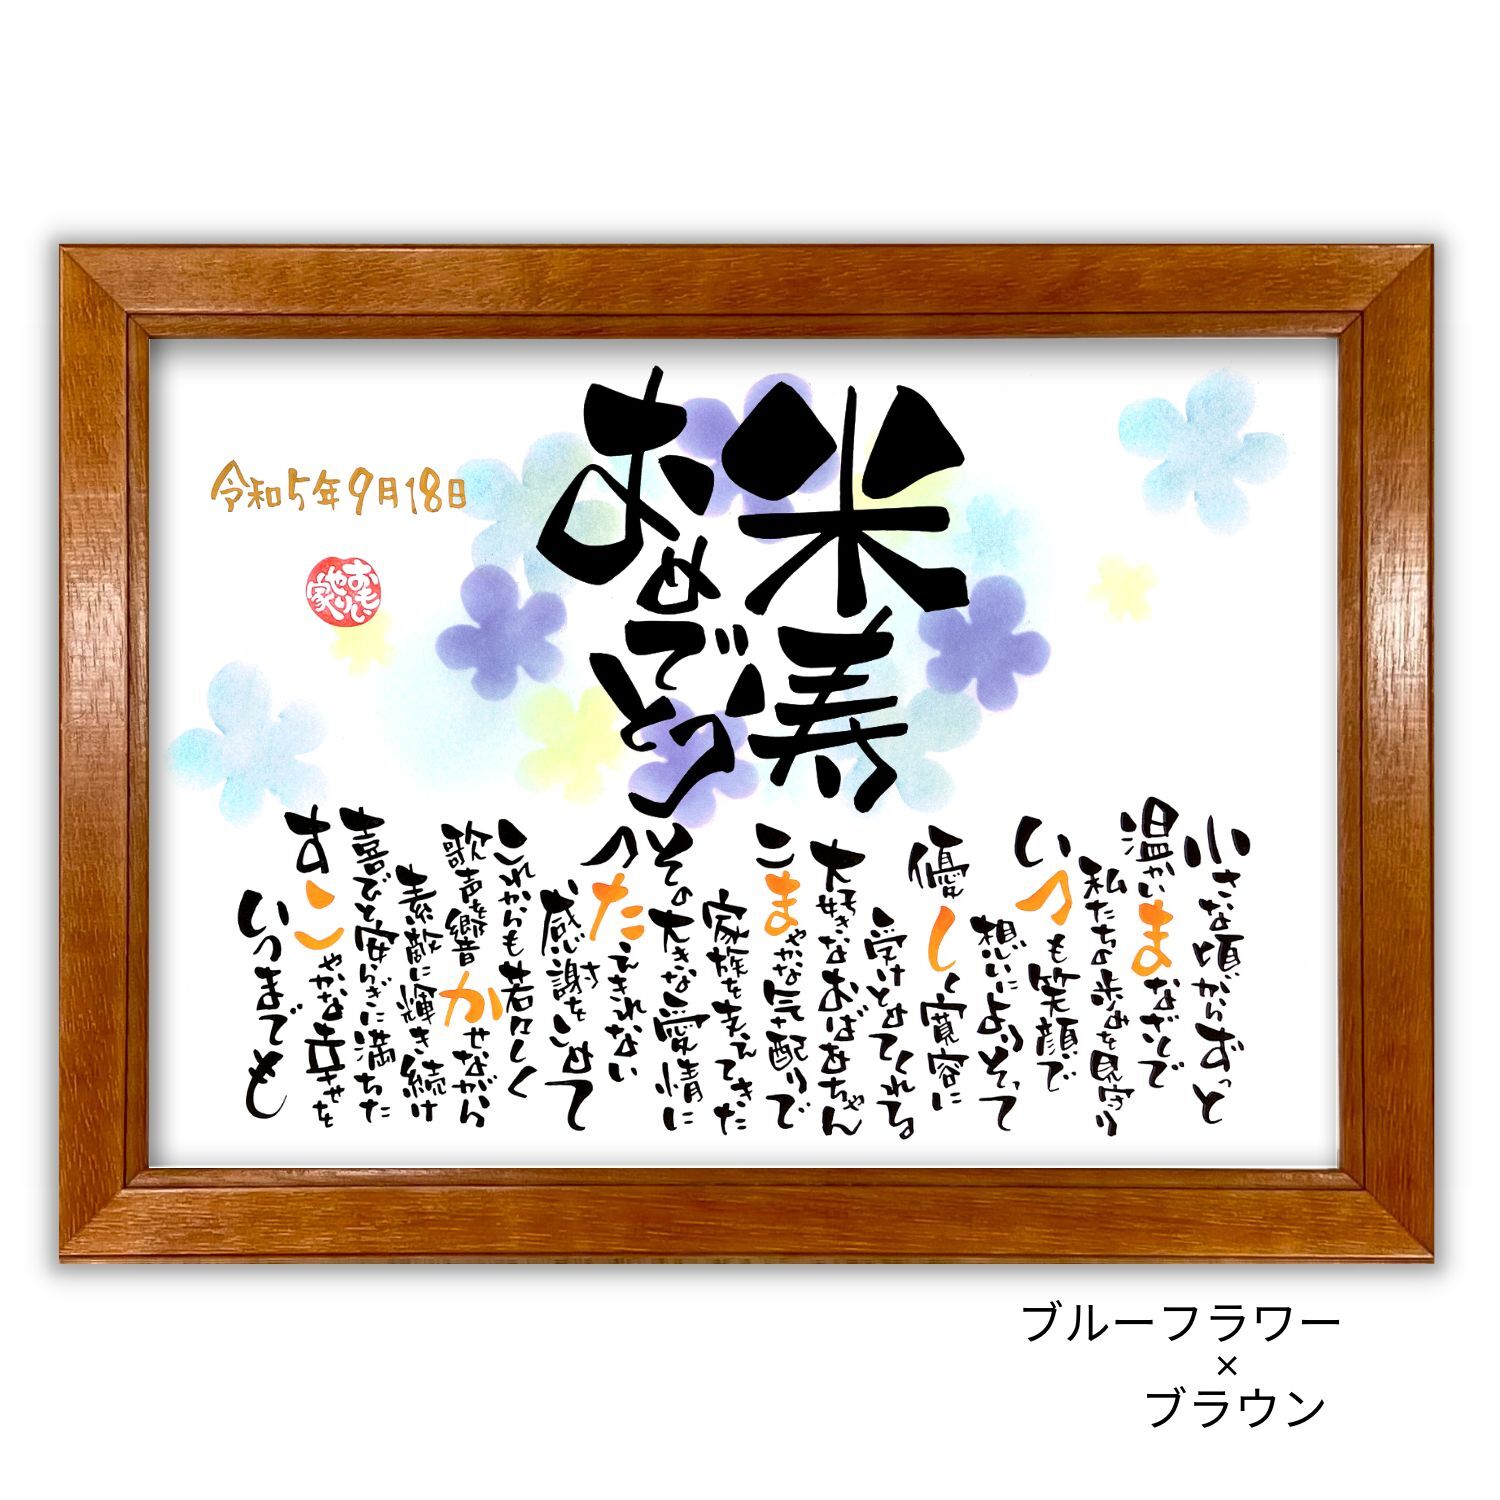 米寿
おめでとう
令和5年9月18日
おもい
やり
家
小さな頃からずっと
温かいまなざしで
私たちの歩みを見守り
いつも笑顔で
想いによりそって
優しく寛容に
受けとめてくれる
大好きなおばあちゃん
こまやかな気配りで
家族を支えてきた
その大きな愛情に
つたえきれない
感謝をこめて
これからも若々しく
歌声を響かせながら
素敵に輝き続け
喜びと安らぎに満ちた
すこやかな幸せを
いつまでも
ブルーフラワー
×
ブラウン